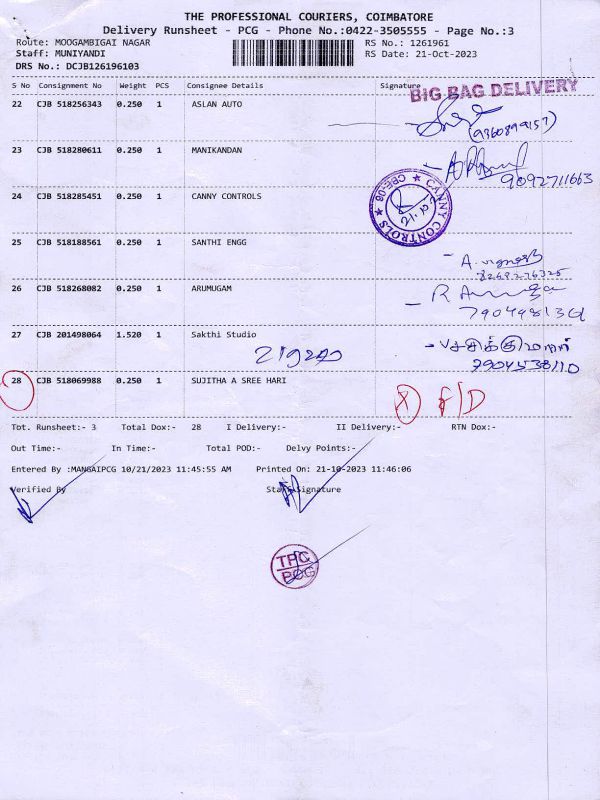 THE PROFESSIONAL COURIERS, COIMBATORE
Delivery Runsheet - PCG - Phone No.:0422-3505555 - Page No.:3
Route: MOOGAMBIGAI NAGAR RS No.: 1261961
Staff: MUNIYANDI RS Date: 21-Oct-2023
DRS No.: DCJB126196103
S No Consignment No Weight PCS Consignee Details Signature
BIG BAG DELIVERY
22 CJB 518256343 0.250 1 ASLAN AUTO
(9360899157)
23 CJB 518280611 0.250 1 MANIKANDAN
9092711663
24 CJB 518285451 0.250 1 CANNY CONTROLS
★ CANNY CONTROLS ★ CBE-06
25 CJB 518188561 0.250 1 SANTHI ENGG
26 CJB 518268082 0.250 1 ARUMUGAM
27 CJB 201498064 1.520 1 Sakthi Studio
7904538110
28 CJB 518069988 0.250 1 SUJITHA A SREE HARI
F/D
Tot. Runsheet:- 3 Total Dox:- 28 I Delivery:- II Delivery:- RTN Dox:-
Out Time:- In Time:- Total POD:- Delvy Points:-
Entered By :MANGAIPCG 10/21/2023 11:45:55 AM Printed On: 21-10-2023 11:46:06
Verified By Staff Signature
TPC
PCG